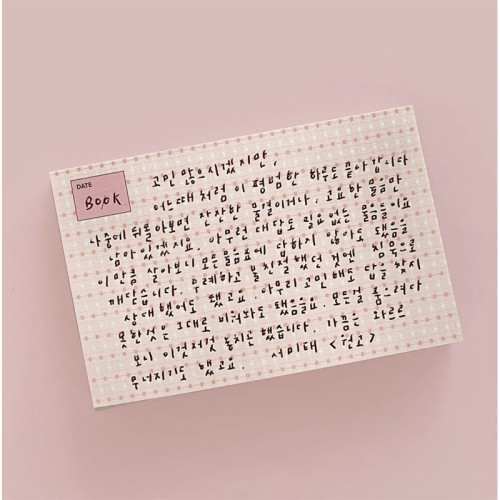 DATE
BOOK
고민 많으시겠지만,
여느 때처럼 이 평범한 하루도 끝이 납니다
나중에 뒤돌아보면 잔잔한 물결이거나, 고요한 물음만
남아 있겠지요. 아무런 대답도 필요 없는 물음들이요
이만큼 살아보니 모든 물음표에 답하지 않아도 됐음을
깨닫습니다. 무례하고 불친절했던 것에 침묵으로
상대했어도 됐고요. 아무리 고민해도 답을 찾지
못한 것은 그대로 비워놔도 됐음을요. 모든 걸 품으려다
보니 이것저것 놓치고 했습니다. 가끔은 와르르
무너지기도 했고요. 서미태 <현고>